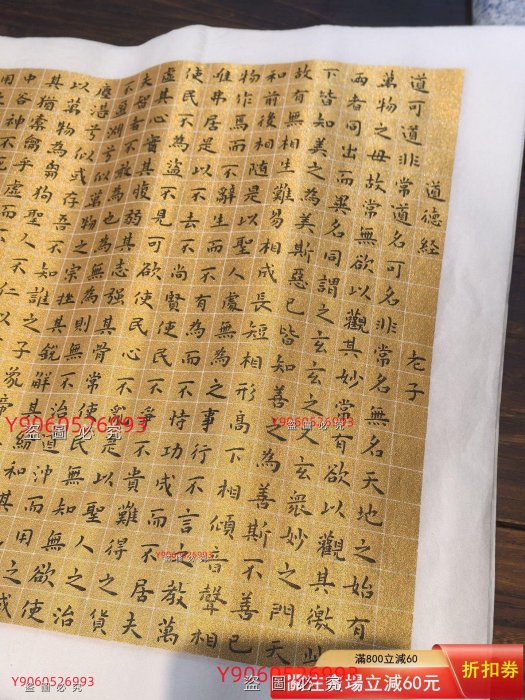 道德經 老子
道可道非常道名可名非常名無名天地之始有
萬物之母故常無欲以觀其妙常有欲以觀其徼此
兩者同出而異名同謂之玄玄之又玄眾妙之門天
下皆知美之為美斯惡已皆知善之為善斯不善已
故有無相生難易相成長短相形高下相傾音聲相
和前後相隨是以聖人處無為之事行不言之教萬
物作焉而不辭生而不有為而不恃功成而不居夫
唯弗居是以不去不尚賢使民不爭不貴難得之貨
使民不為盜不見可欲使民心不亂是以聖人之治
虛其心實其腹弱其志強其骨常使民無知無欲使
夫智者不敢為也為無為則無不治道沖而用之或
不盈淵兮似萬物之宗挫其銳解其紛和其
塵湛兮似或存吾不知誰之子象帝
以萬物為芻狗聖人不仁以
其猶橐籥乎虛而不
中谷神不死
Y9060526993
盜圖必究
Y9060526993
盜圖必究
Y9060526993
Y9060526993
盜圖必究
Y9060526993
盜圖必究
滿800立減60
關注賣場立減60元
折扣券